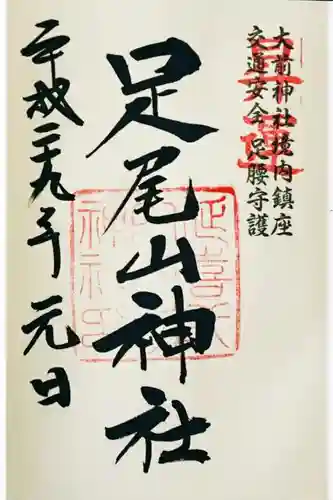 大前神社境内鎮座
交通安全足腰守護
足尾山神社
平成二十九年元日